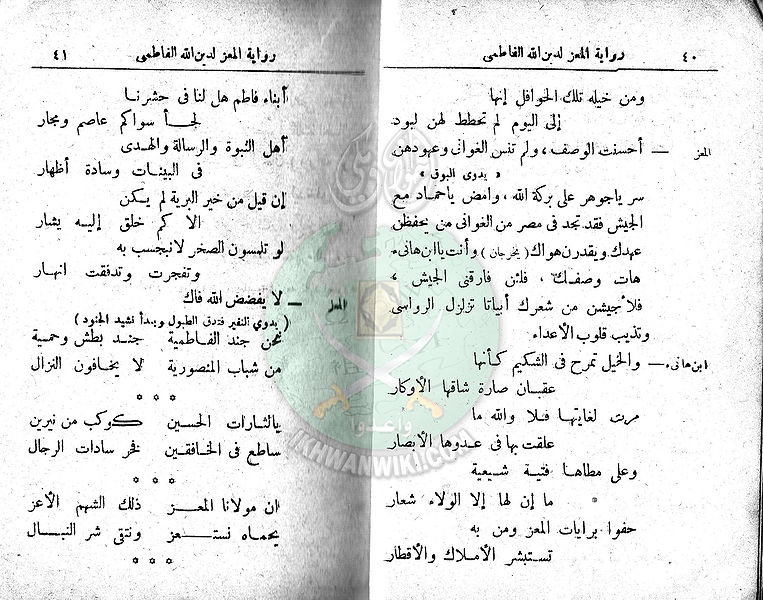 ٤٠
رواية المعز لدين الله الفاطمى
ومن خيله تلك الحوافل إنها
إلى اليوم لم تحطط لهن لبود
المعز — أحسنت الوصف، ولم تنس الغوانى وعهودهن
« يدوى البوق »
سر ياجوهر على بركة الله، وامض ياحماد مع
الجيش فقد تجد فى مصر من الغوانى من يحفظن
عهدك ويقدرن هواك (يخرجان) وأنت يا ابن هانىء
هات وصفك، فلئن فارقنى الجيش،
فلأجيشن من شعرك أبياتا تزلزل الرواسى
وتذيب قلوب الأعداء
ابن هانىء — والخيل تمرح فى الشكيم كأنها
عقبان صارة شاقها الأوكار
مرت لغايتها فلا والله ما
علقت بها فى عدوها الأبصار
وعلى مطاها فتية شيعية
ما إن لها إلا الولاء شعار
حفوا برايات المعز ومن به
تستبشر الأملاك والأقطار
رواية المعز لدين الله الفاطمى
٤١
أبناء فاطم هل لنا فى حشرنا
لجأ سواكم عاصم ومجار
أهل النبوة والرسالة والهدى
فى البينات وسادة أظهار
إن قيل من خير البرية لم يكن
الا كم خلق إليه يشار
لو تلمسون الصخر لانبجست به
وتفجرت وتدفقت انهار
المعز — لا يفضض الله فاك
(يدوي النفير فتدق الطبول ويبدأ نشيد الجنود)
نحن جند الفاطمية جند بطش وحمية
من شباب المنصورية لا يخافون النزال
* * *
يالثارات الحسين كوكب من نيرين
ساطع فى الخافقين فخر سادات الرجال
* * *
ان مولانا المعز ذلك الشهم الأعز
بحماه نستعز ونتقى شر النبال
* * *
واعدوا
IKHWANWIKI.COM